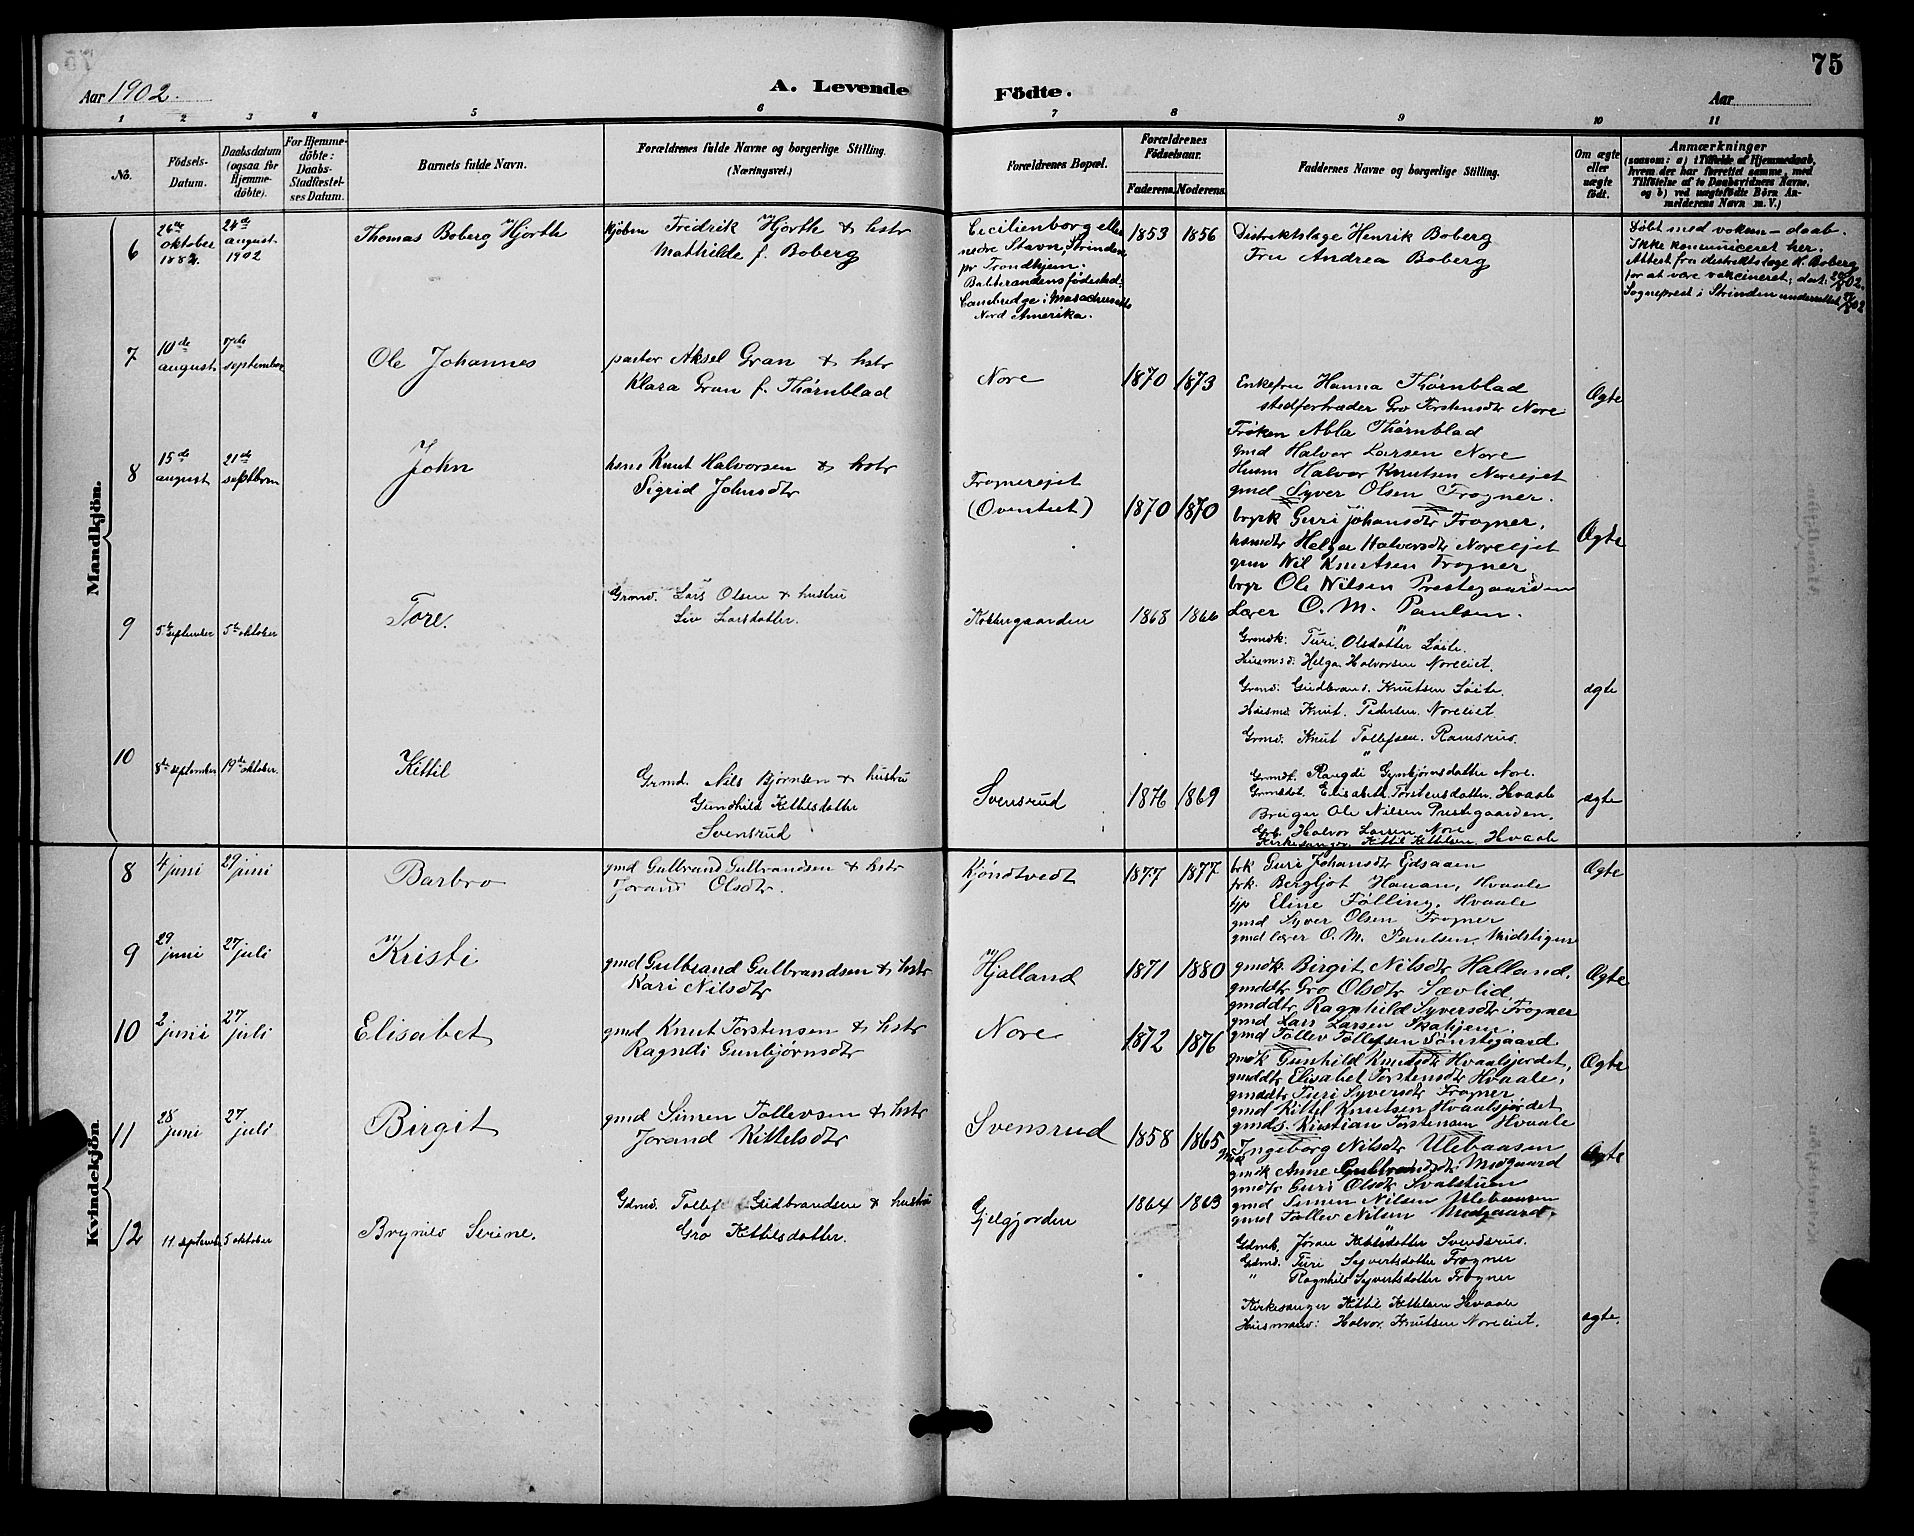 75
Aar 1902.
A. Levende Födte.
Aar
1 2 3 4 5 6 7 8 9 10 11
No.
Födsels-Datum.
Daabsdatum (ogsaa for Hjemmedöbte).
For Hjemmedöbte: Daabs-Stadfæstelses Datum.
Barnets fulde Navn.
Forældrenes fulde Navne og borgerlige Stilling.
(Næringsvei.)
Forældrenes Bopæl.
Forældrenes Födselsaar.
Faderens. Moderens.
Faddernes Navne og borgerlige Stilling.
Om ægte eller uægte födt.
Anmærkninger
(saasom: a) i Tilfælde af Hjemmedaab,
hvem der har forrettet samme, med
Tilföielse af to Daabsvidners Navne,
og b) ved uægtefödte Börn An-
melderens Navn m. V.)
Mandkjön.
6
26de oktober 1882.
24de august 1902
Thomas Boberg Hjorth
kjöbm Fredrik Hjorth & hstr
Mathilde f. Boberg
Cecilienborg eller
nedre Stavn, Strinden
pr Trondhjem.
fødested:
Cambredge i Masachusetts
Nord Amerika.
1853 1856
Distriktslæge Henrik Boberg
Fru Andrea Boberg
Døbt med voksen-daab.
Ikke konfirmeret her.
Attest fra distriktslæge H. Boberg
for at være vakcineret, dat.
Sogneprest i Strinden underrettet
7
10de august
7de september
Ole Johannes
pastor Aksel Gran & hstr
Klara Gran f. Thørnblad
Nore
1870 1873
Enkefru Hanna Thørnblad
stedfortræder Gro Torstensdtr Nore
Frøken Abla Thørnblad
Gmd Halvor Larsen Nore
Husm Halvor Knutsen Noreeiet
gmd Syver Olsen Frogner.
Ægte
8
15de august
21de septbr
John
hsm Knut Halvorsen & hstr
Sigrid Johnsdtr
Frognereiet
1870 1870
Guri Johansdtr Frogner,
hsmdtr Helga Halvorsdtr Noreeiet
gm Nil Knutsen Frogner
bgr Ole Nilsen Prestegaarden
Lærer O. M. Paulsen.
Ægte
9
5te september
5te oktober
Tore.
Grmd. Lars Olsen & hustru
Liv Larsdatter.
1868 1866
Grmdk. Turi Olsdatter Løite.
Husmd. Helga Halvorsen Noreeiet.
Grmd. Gudbrand Knutsen Løite.
Husmd. Knut Pedersen Noreeiet.
Grmd. Knut Tollefsen Ramsrud.
ægte
10
8de september
19de oktober.
Kittil
Grmd. Nils Bjørnsen & hustru
Gundhild Kittilsdatter
Svensrud
Svensrud
1876 1869
Grmdk. Rangdi Gunbjørnsdatter Nore.
Elisabeth Torstensdatter Hvaale
Bruger Ole Nilsen Prestegaarden.
Halvor Larsen Nore
Kirkesanger Kittil Kittilsen Hvaale
ægte
Kvindekjön.
8
4 juni
29 juni
Barbro
gmd Gulbrand Gulbrandsen & hstr
Jorand Olsdtr.
Kjøndtvedt
1877 1877
Guri Johansdtr Eidsaaen
frk. Bergljot Hanan, Hvaale
Eline Følling, Hvaale
gmd Syver Olsen Frogner
gmd lærer O. M. Paulsen
Ægte
9
29 juni
27 juli
Kristi
gmd Gulbrand Gulbrandsen & hstr
Kari Nilsdtr
Hjalland
1871 1880
gmdk. Birgit Nilsdtr Halland,
gmddtr Gro Olsdtr Sævlid,
gmddtr Ragnhild Syversdtr Frogner
gmd Lars Larsen Skahjem
gmd Tollev Tollefsen Sønstegaard
Ægte
10
2 juni
27 juli
Elisabet
gmd Knut Torstensen & hstr
Ragndi Gunbjørnsdtr
Nore
1872 1876
gmdk Gunhild Knutsdtr Hvaalsjordet,
gmddtr Elisabet Torstensdtr Hvaale,
gmddtr Turi Syversdtr Frogner
gmd Kittel Knutsen Hvaalsjordet
gmds. Kristian Torstensen Hvaale
Ægte
11
28 juni
27 juli
Birgit
gmd Simen Tollevsen & hstr
Jorand Kittelsdtr
Svensrud
1858 1865
Ingeborg Nilsdtr Ulebaasen
gmdk Anne Gulbrandsdtr Midgaard
Guri Olsdtr Svalstuen
gmd Simen Nilsen Ulebaasen
gmd Tollev Nilsen Midgaard.
Ægte
12
11 september
5 oktober
Brynild Serine.
Gdmd. Tollef Gudbrandsen & hustru
Gro Kittilsdatter.
Gjelgjorden
1864 1863
Gdmk. Joran Kittilsdatter Svendsrud.
Gdmd. Turi Syvertsdatter Frogner
" Ragnhild Syvertsdatter Frogner
Kirkesanger Kittil Kittilsen Hvaale
Husmand: Halvor Knutsen Noreeiet.
ægte.